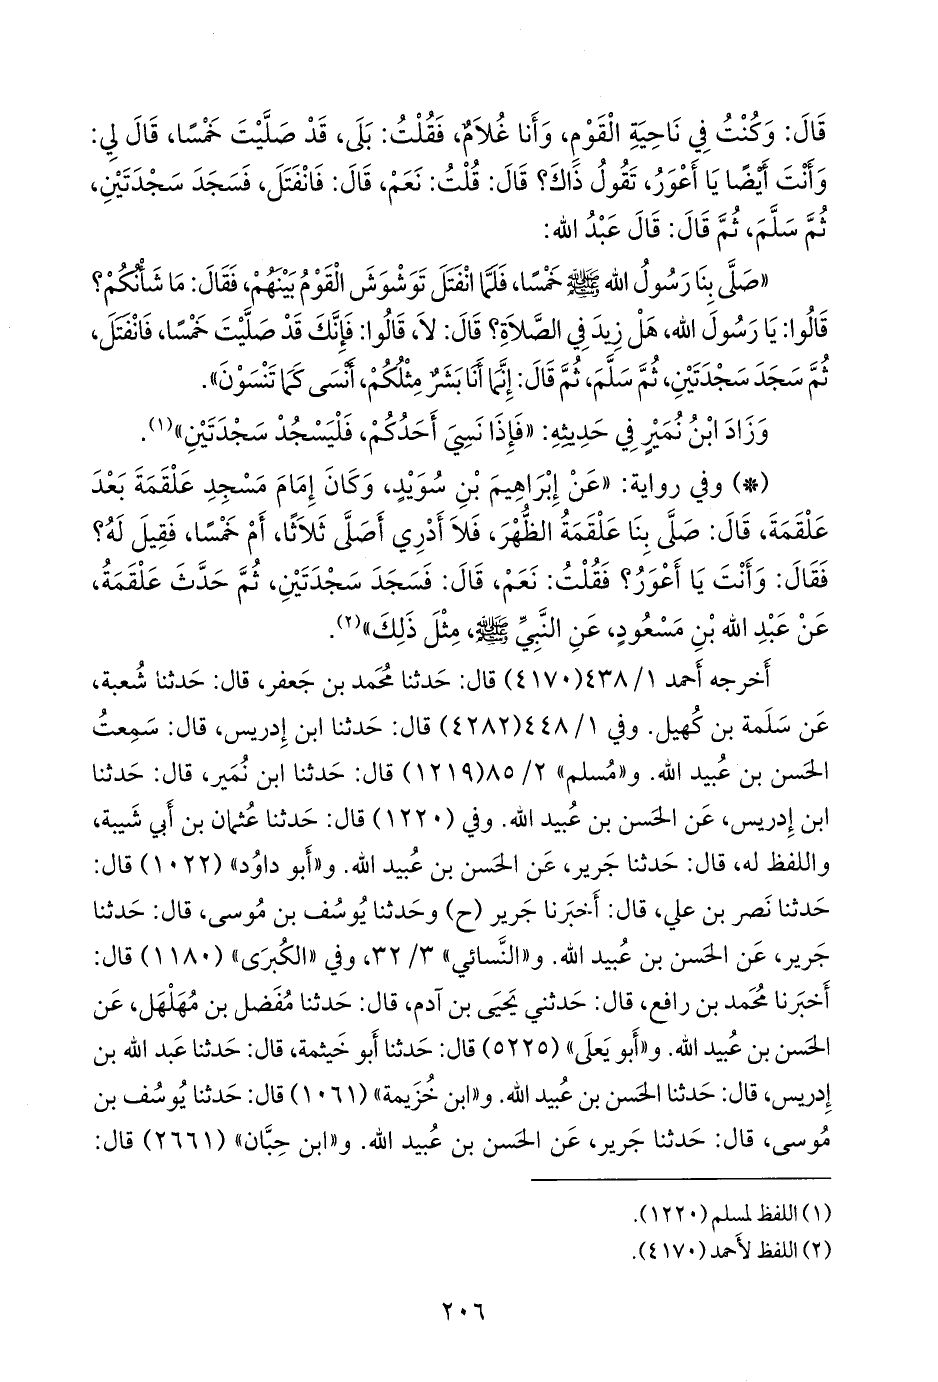 قَالَ: وَكُنْتُ فِي نَاحِيَةِ الْقَوْمِ، وَأَنا غُلاَمٌ، فَقُلْتُ: بَلَى، قَدْ صَلَّيْتَ خَمْسًا، قَالَ لِي:
وَأَنْتَ أَيْضًا يَا أَعْوَرُ، تَقُولُ ذَاكَ؟ قَالَ: قُلْتُ: نَعَمْ، قَالَ: فَانْفَتَلَ، فَسَجَدَ سَجْدَتَيْنِ،
ثُمَّ سَلَّمَ، ثُمَّ قَالَ: قَالَ عَبْدُ الله:
«صَلَّى بِنَا رَسُولُ الله ﷺ خَمْسًا، فَلَمَّا انْفَتَلَ تَوَشْوَشَ الْقَوْمُ بَيْنَهُمْ، فَقَالَ: مَا شَأْنُكُمْ؟
قَالُوا: يَا رَسُولَ الله، هَلْ زِيدَ فِي الصَّلاَةِ؟ قَالَ: لاَ، قَالُوا: فَإِنَّكَ قَدْ صَلَّيْتَ خَمْسًا، فَانْفَتَلَ،
ثُمَّ سَجَدَ سَجْدَتَيْنِ، ثُمَّ سَلَّمَ، ثُمَّ قَالَ: إِنَّمَا أَنَا بَشَرٌ مِثْلُكُمْ، أَنْسَى كَمَا تَنْسَوْنَ».
وَزَادَ ابْنُ نُمَيْرٍ فِي حَدِيثِهِ: «فَإِذَا نَسِيَ أَحَدُكُمْ، فَلْيَسْجُدْ سَجْدَتَيْنِ»(١).
(*) وفي رواية: «عَنْ إِبْرَاهِيمَ بْنِ سُوَيْدٍ، وَكَانَ إِمَامَ مَسْجِدِ عَلْقَمَةَ بَعْدَ
عَلْقَمَةَ، قَالَ: صَلَّى بِنَا عَلْقَمَةُ الظُّهْرَ، فَلاَ أَدْرِي أَصَلَّى ثَلاَثًا، أَمْ خَمْسًا، فَقِيلَ لَهُ؟
فَقَالَ: وَأَنْتَ يَا أَعْوَرُ؟ فَقُلْتُ: نَعَمْ، قَالَ: فَسَجَدَ سَجْدَتَيْنِ، ثُمَّ حَدَّثَ عَلْقَمَةُ،
عَنْ عَبْدِ الله بْنِ مَسْعُودٍ، عَنِ النَّبِيِّ ﷺ، مِثْلَ ذَلِكَ»(٢).
أَخرجه أَحمد ١/ ٤٣٨(٤١٧٠) قال: حَدثنا مُحَمد بن جَعفر، قال: حَدثنا شُعبة،
عَن سَلَمة بن كُهيل. وفي ١/ ٤٤٨(٤٢٨٢) قال: حَدثنا ابن إِدريس، قال: سَمِعتُ
الحَسن بن عُبيد الله. و«مُسلم» ٢/ ٨٥(١٢١٩) قال: حَدثنا ابن نُمَير، قال: حَدثنا
ابن إِدريس، عَن الحَسن بن عُبيد الله. وفي (١٢٢٠) قال: حَدثنا عُثمان بن أَبي شَيبة،
واللفظ له، قال: حَدثنا جَرير، عَن الحَسن بن عُبيد الله. و«أَبو داوُد» (١٠٢٢) قال:
حَدثنا نَصر بن علي، قال: أَخبَرنا جَرير (ح) وحَدثنا يُوسُف بن مُوسى، قال: حَدثنا
جَرير، عَن الحَسن بن عُبيد الله. و«النَّسائي» ٣/ ٣٢، وفي «الكُبرَى» (١١٨٠) قال:
أَخبَرنا مُحَمد بن رافع، قال: حَدثني يَحيَى بن آدم، قال: حَدثنا مُفَضل بن مُهَلهَل، عَن
الحَسن بن عُبيد الله. و«أَبو يَعلَى» (٥٢٢٥) قال: حَدثنا أَبو خَيثمة، قال: حَدثنا عَبد الله بن
إِدريس، قال: حَدثنا الحَسن بن عُبيد الله. و«ابن خُزَيمة» (١٠٦١) قال: حَدثنا يُوسُف بن
مُوسى، قال: حَدثنا جَرير، عَن الحَسن بن عُبيد الله. و«ابن حِبَّان» (٢٦٦١) قال:
(١) اللفظ لمسلم (١٢٢٠).
(٢) اللفظ لأَحمد (٤١٧٠).
٢٠٦